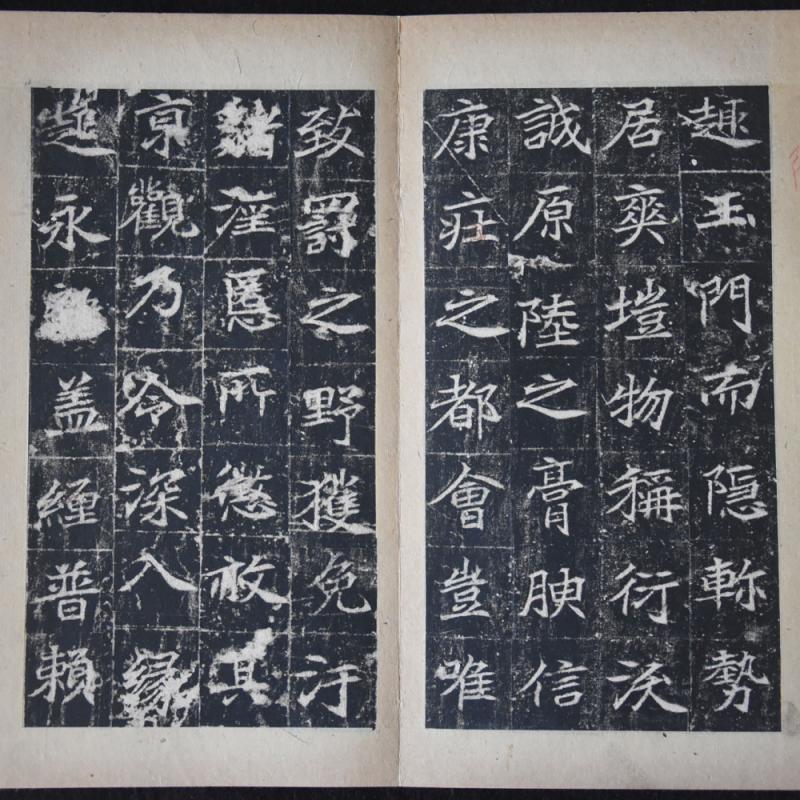 趣玉門而隐軫勢
居爽塏物稱衍沃
誠原陸之膏腴信
康莊之都會豈唯
致罰之野獲免汙
淫慝所懲其
京觀乃令深入緣
起永盖纏普賴